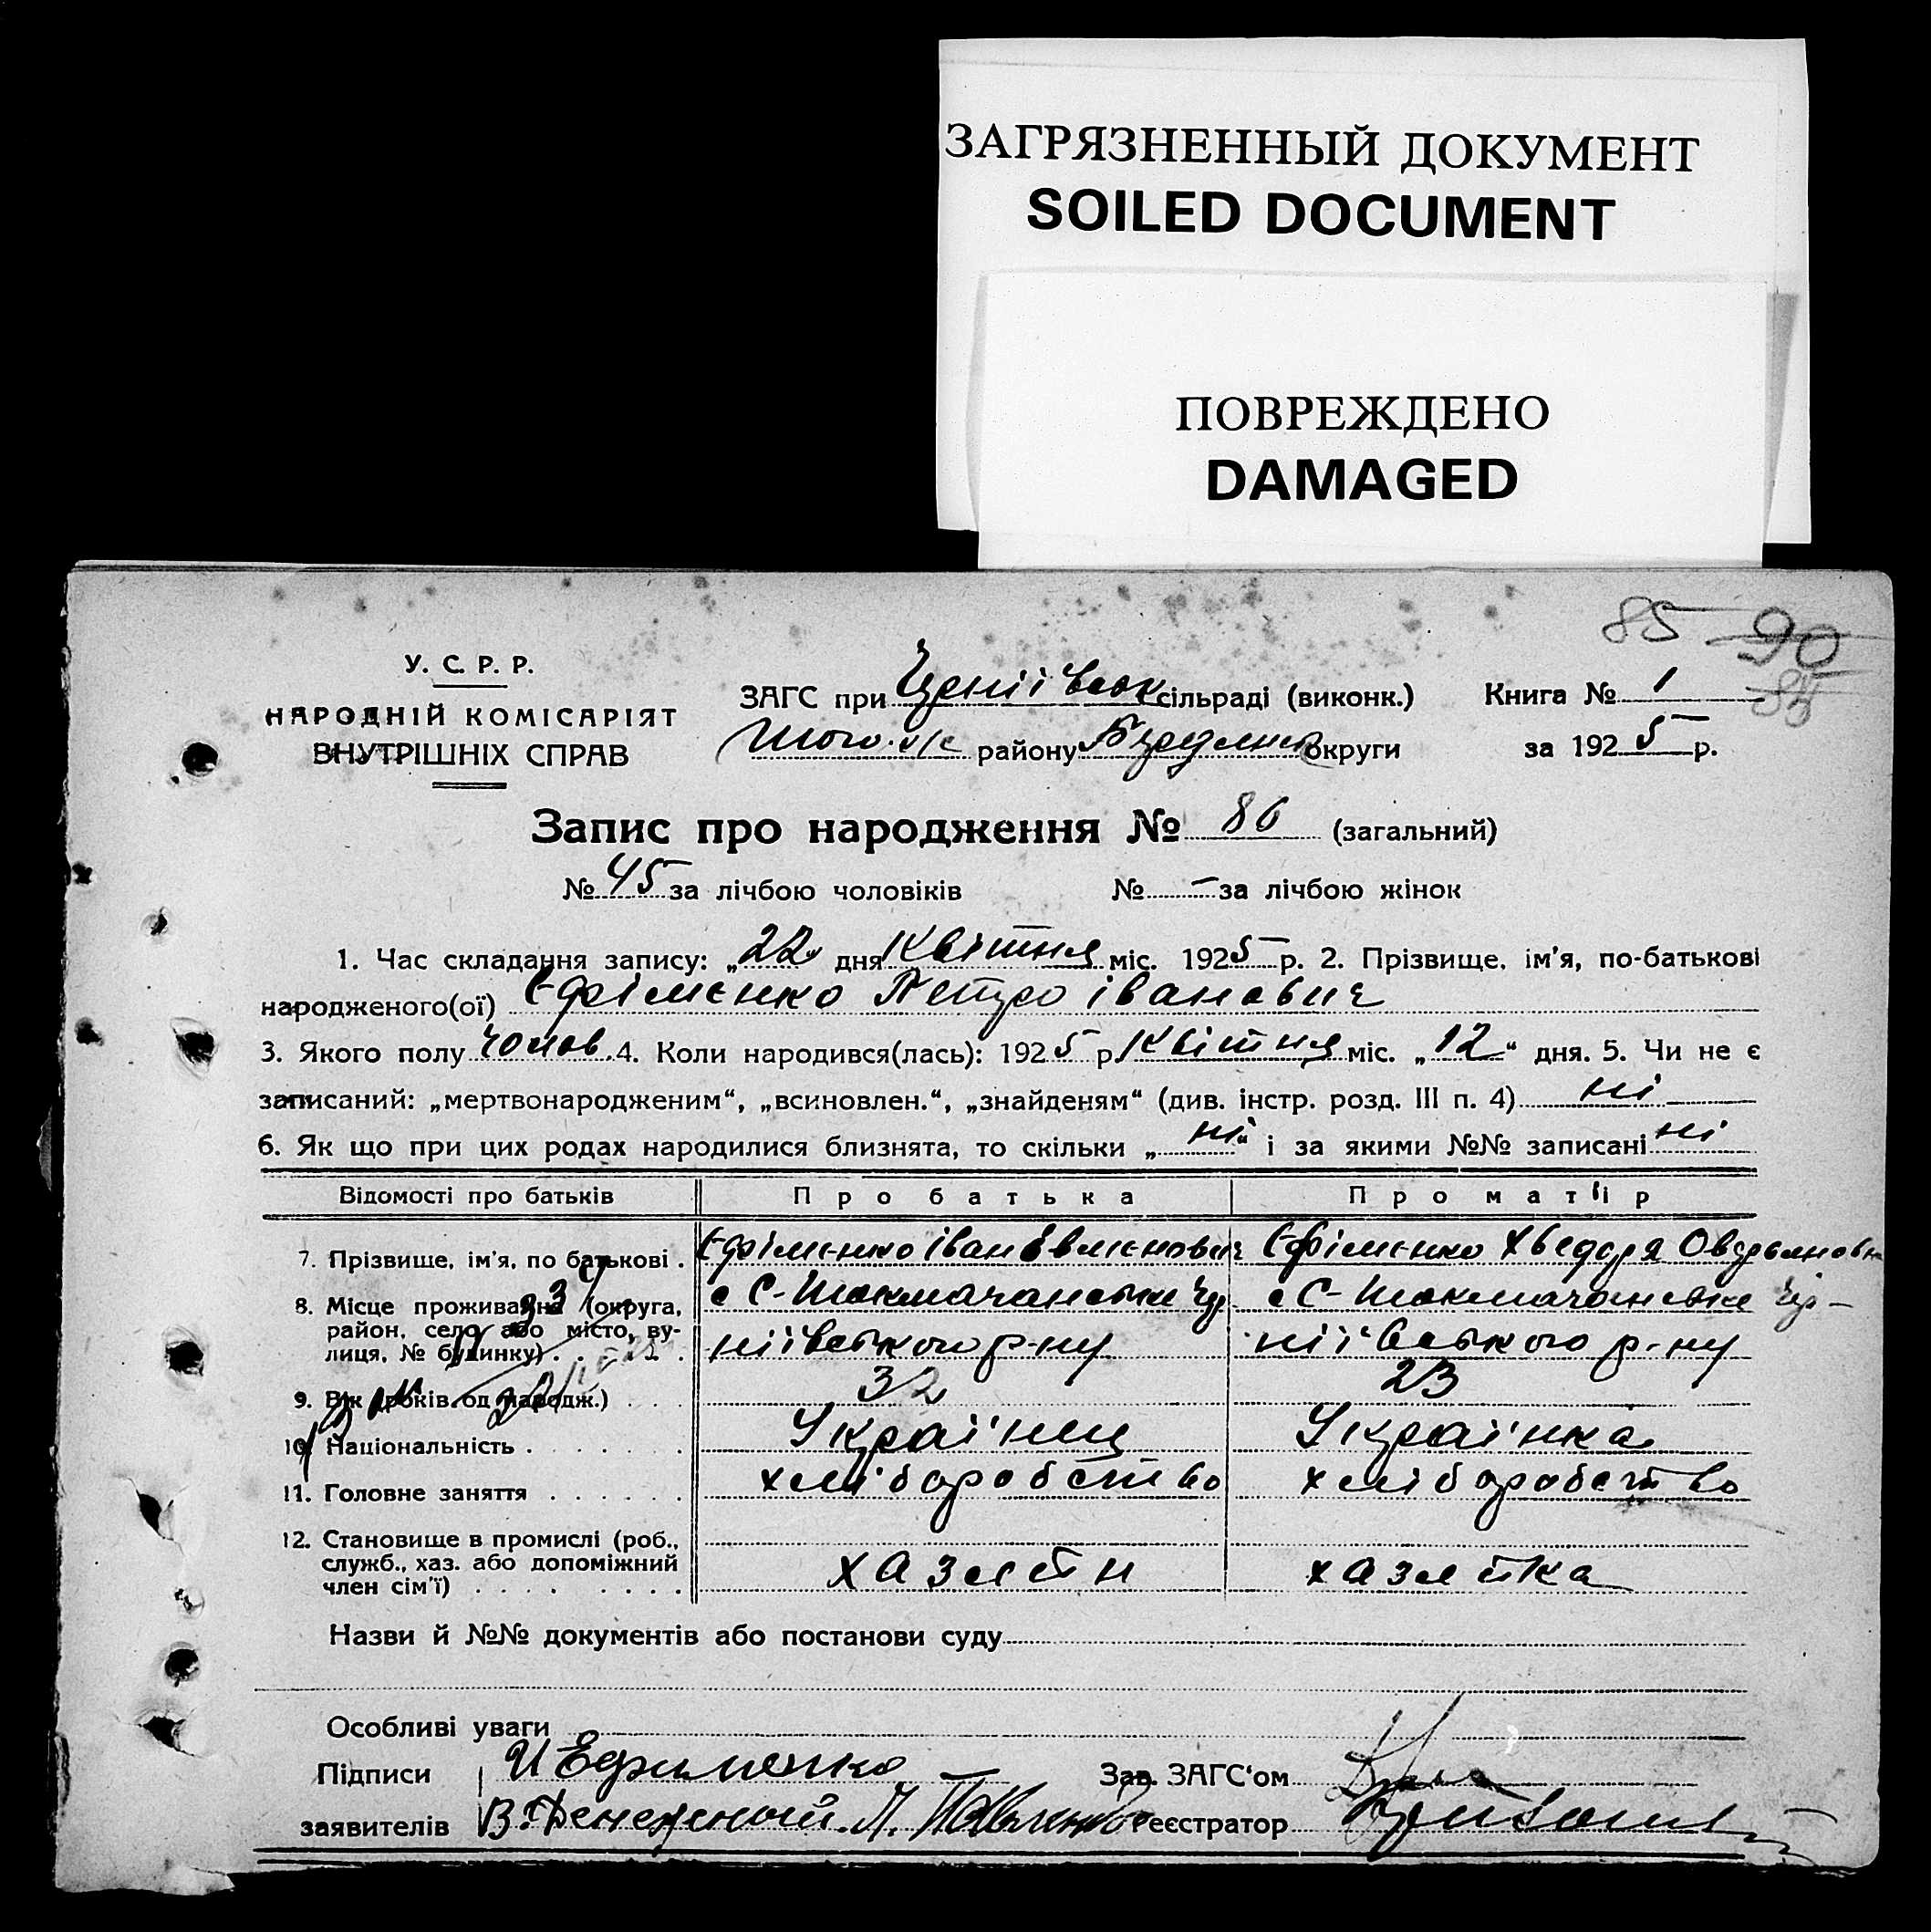 ЗАГРЯЗНЕННЫЙ ДОКУМЕНТ
SOILED DOCUMENT
ПОВРЕЖДЕНО
DAMAGED
85 90
85
У. С. Р. Р.
НАРОДНІЙ КОМІСАРІЯТ
ВНУТРІШНІХ СПРАВ
ЗАГС при сільраді (виконк.)
району округи
Книга № 1
за 1925 р.
Запис про народження № 86 (загальний)
№ 45 за лічбою чоловіків № - за лічбою жінок
1. Час складання запису: „22 дня Квітня міс. 1925 р. 2. Прізвище, ім'я, по-батькові
народженого(ої) Єфіменко Петро Іванович
3. Якого полу чолов. 4. Коли народився(лась): 1925 р. Квітня міс. „12“ дня. 5. Чи не є
записаний: „мертвонародженим“, „всиновлен.“, „знайденям“ (див. інстр. розд. III п. 4) ні
6. Як що при цих родах народилися близнята, то скільки „ні“ і за якими №№ записані ні
Відомості про батьків Про батька Про матір
7. Прізвище, ім'я, по батькові . Єфіменко Іван Єфіменко Хведора
8. Місце проживання (округа,
район, село або місто, ву-
лиця, № будинку) . . . . с С-Токмачанське Чер с С-Токмачанське Чер-
ніївського р-ну ніївського р-ну
9. Вік (років од народж.) . . . 32 23
10. Національність . . . . . . Українец Українка
11. Головне заняття . . . . . . хліборобство хліборобство
12. Становище в промислі (роб.,
служб., хаз. або допоміжний
член сім'ї) . . . . . . . . хазяїн хазяйка
Назви й №№ документів або постанови суду
Особливі уваги
Підписи И Ефименко Зав. ЗАГС'ом
заявителів Реєстратор